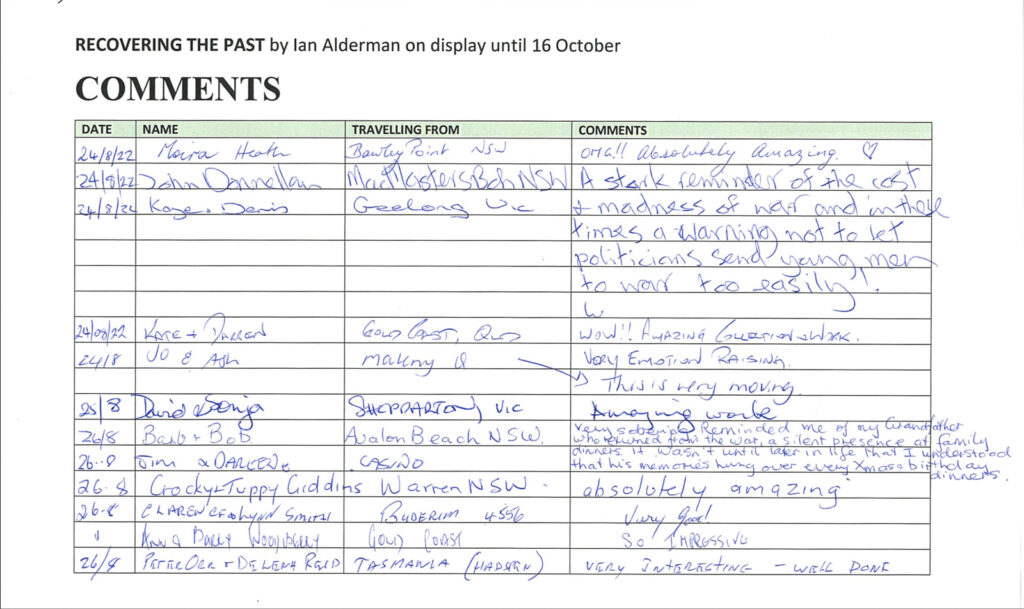 RECOVERING THE PAST by Ian Alderman on display until 16 October
COMMENTS
DATE NAME TRAVELLING FROM COMMENTS
24/8/22 Moira Heath Bawley Point NSW OMG!! Absolutely Amazing. ♡
24/8/22 John Donnellan MacMasters Bch NSW A stark reminder of the cost
24/8/22 Kaye & Denis Geelong Vic + madness of war and in these
times a warning not to let
politicians send young men
to war too easily!
24/08/22 Kate + Darren Gold Coast, QLD WOW!! Amazing Collection & Work.
24/8 Jo & Ash Makeny Q Very Emotion Raising.
This is very moving
25/8 David & Sonja Shepparton, Vic Amazing work
26/8 Barb + Bob Avalon Beach NSW. Very sobering. Reminded me of my Grandfather
who returned from the war, a silent presence at family
dinners. It wasn't until later in life that I understood
26.8 Jim & Darleen Casino that his memories hung over every Xmas & birthday
dinners.
26.8 Crocky + Tuppy Giddins Warren NSW. absolutely amazing
26.8 Clarence & Lynn Smith Buderim 4556 Very Good
" Barry Woodberry Gold Coast So Impressive
26/8 Peter Orr + Delena Reid Tasmania Very Interesting - Well Done